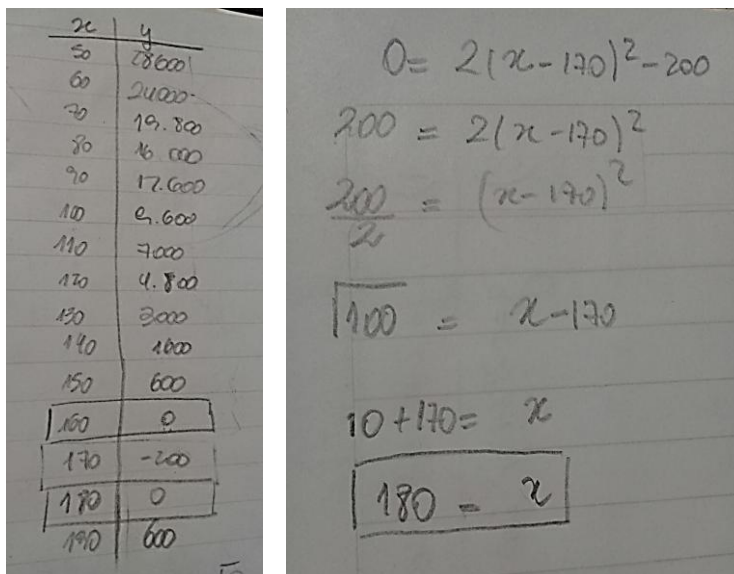 x y
50 28600
60 24000
70 19.800
80 16 000
90 12.600
100 9.600
110 7000
120 4.800
130 3000
140 1600
150 600
160 0
170 -200
180 0
190 600
0= 2(x-170)²-200
200 = 2(x-170)²
200/2 = (x-170)²
√100 = x-170
10+170= x
180 = x